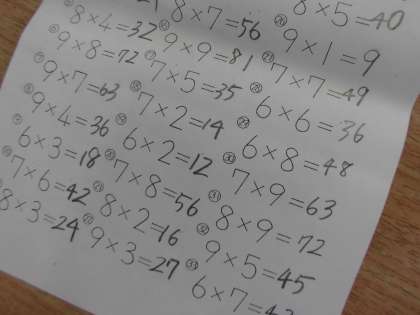 8×4=32
9×8=72
9×7=63
9×4=36
6×3=18
7×6=42
8×3=24
8×7=56
9×9=81
7×5=35
7×2=14
6×2=12
7×8=56
8×2=16
9×3=27
8×5=40
9×1=9
7×7=49
6×6=36
6×8=48
7×9=63
8×9=72
9×5=45
6×7=